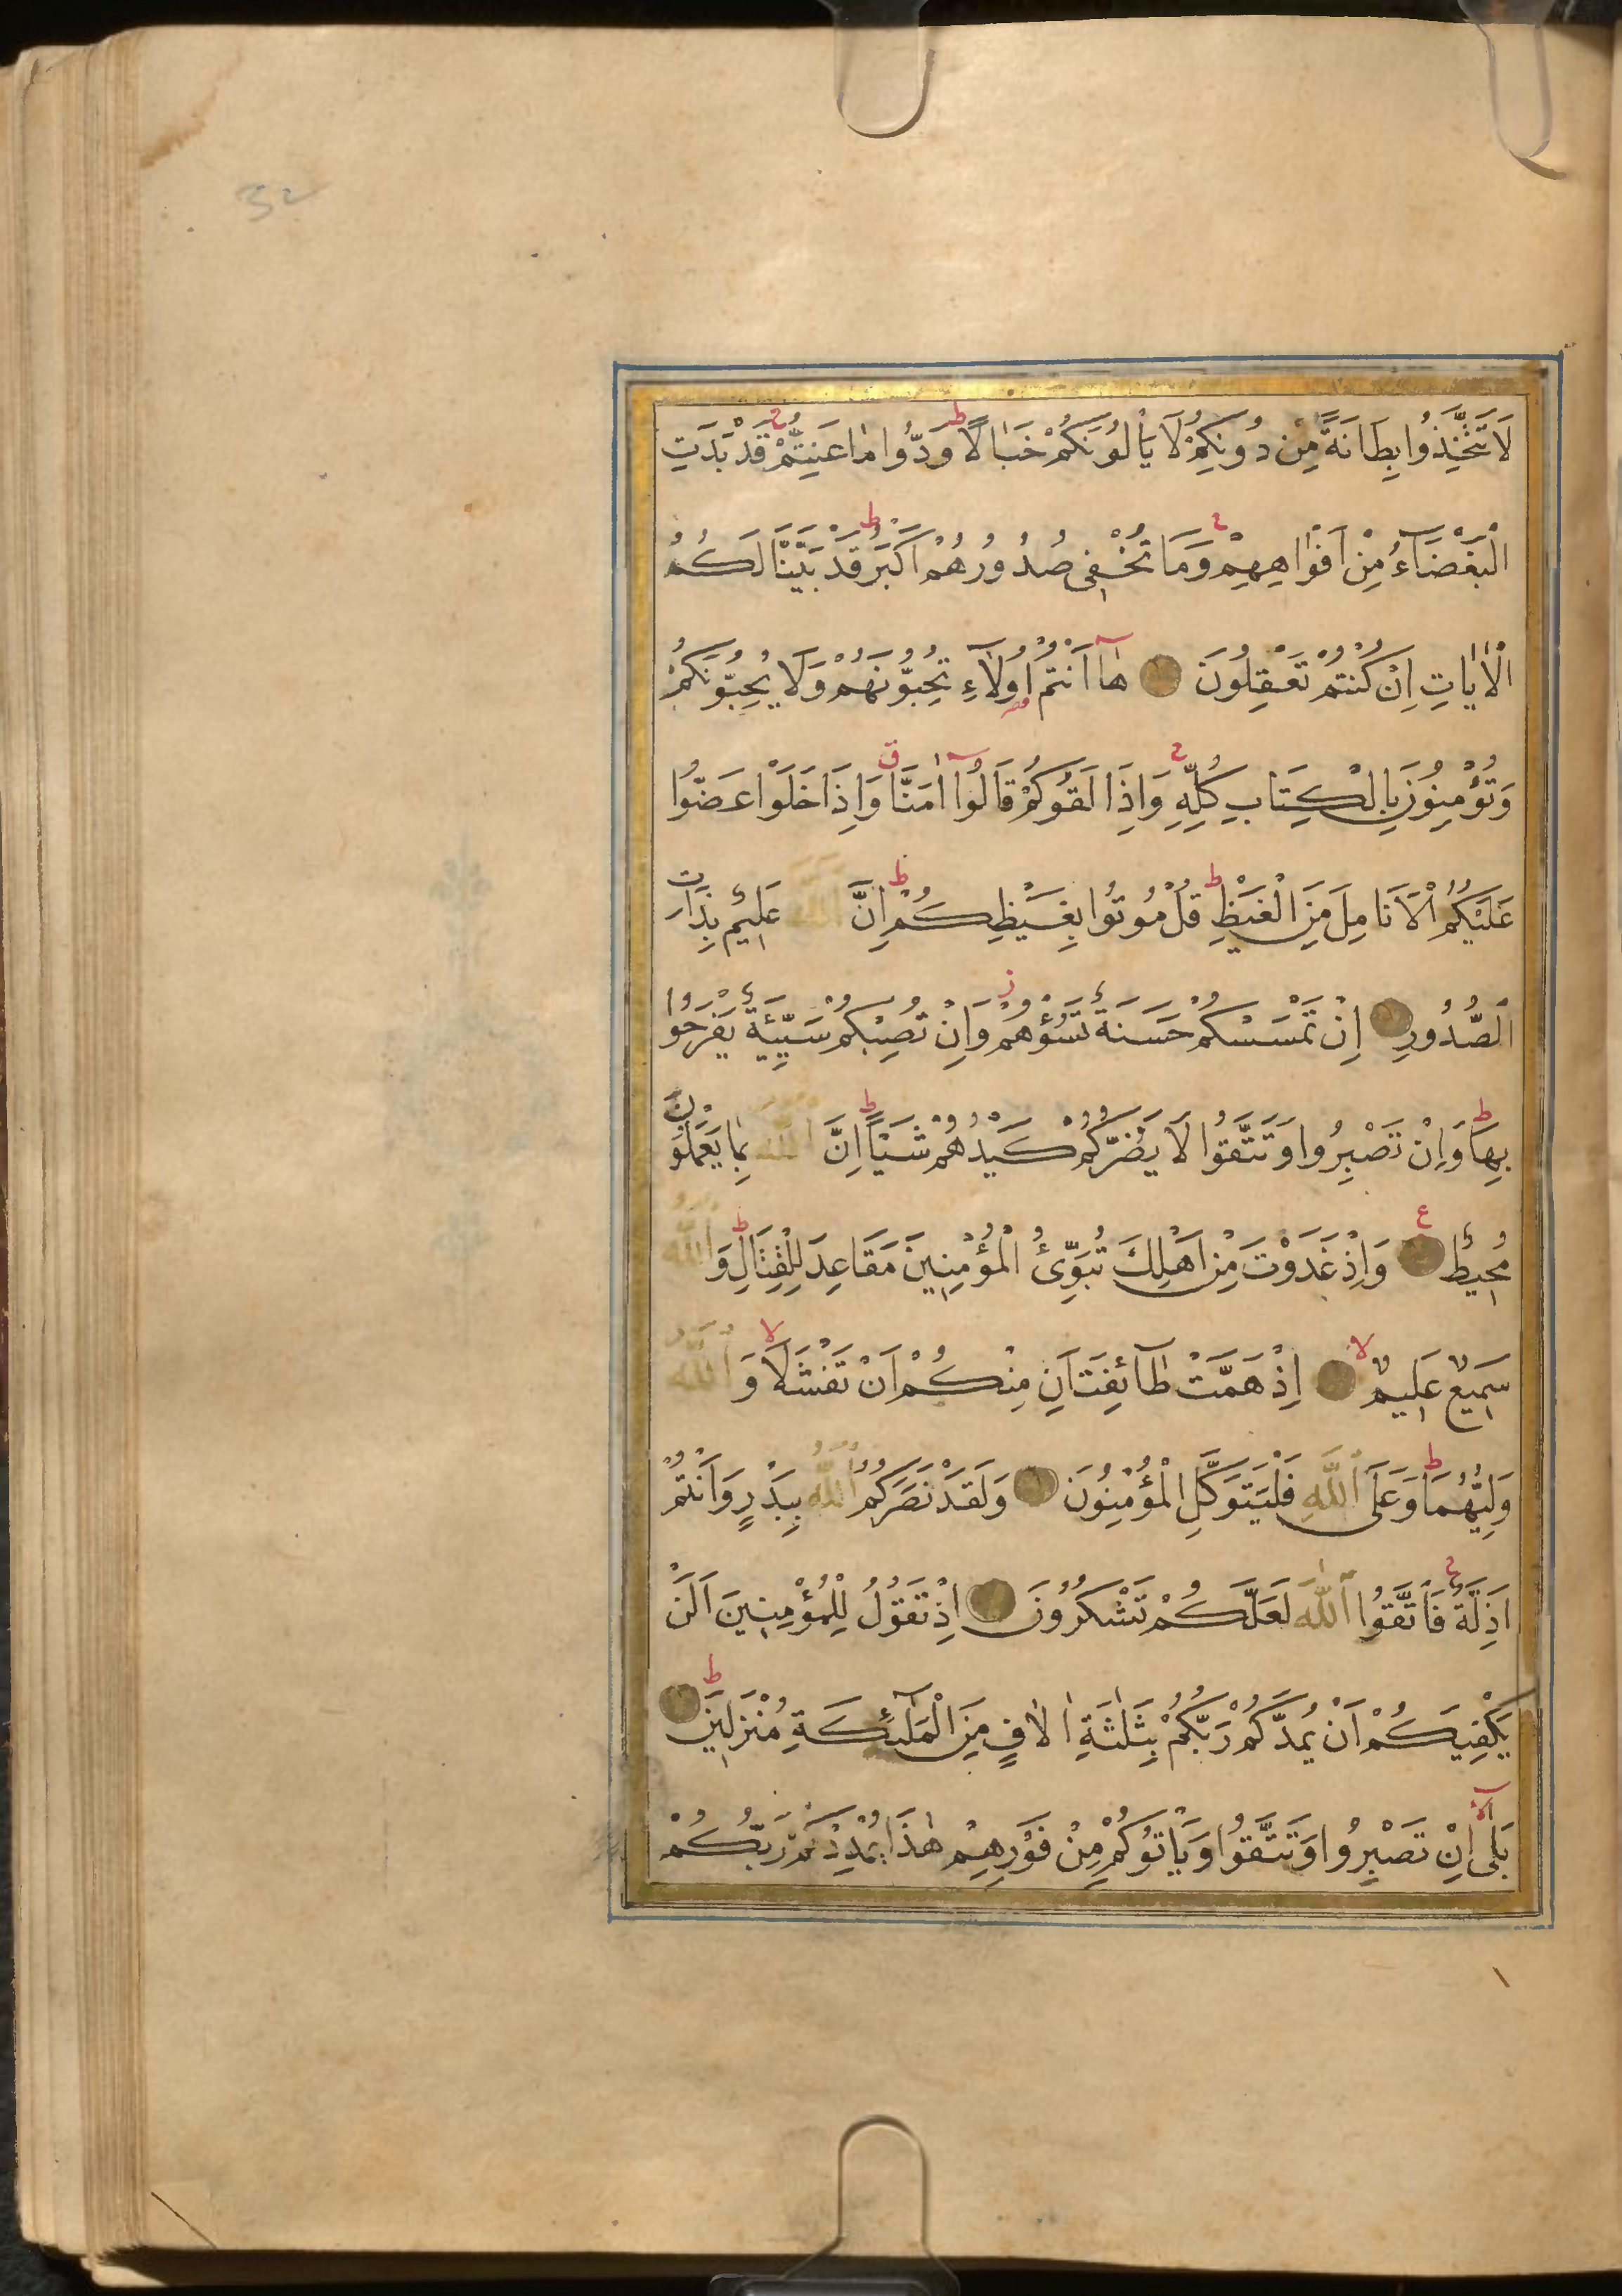 32
لَا تَتَّخِذُوا بِطَانَةً مِنْ دُونِكُمْ لَا يَأْلُونَكُمْ خَبَالًا ط وَدُّوا مَا عَنِتُّمْ ج قَدْ بَدَتِ
الْبَغْضَآءُ مِنْ اَفْوَاهِهِمْ ج وَمَا تُخْفِى صُدُورُهُمْ اَكْبَرُ ط قَدْ بَيَّنَّا لَكُمُ
الْاٰيَاتِ اِنْ كُنْتُمْ تَعْقِلُونَ هَٓا اَنْتُمْ اُولَٓاءِ تُحِبُّونَهُمْ وَلَا يُحِبُّونَكُمْ
وَتُؤْمِنُونَ بِالْكِتَابِ كُلِّهِ ج وَاِذَا لَقُوكُمْ قَالُوٓا اٰمَنَّا ق وَاِذَا خَلَوْا عَضُّوا
عَلَيْكُمُ الْاَنَامِلَ مِنَ الْغَيْظِ ط قُلْ مُوتُوا بِغَيْظِكُمْ ط اِنَّ اللّٰهَ عَلِيمٌ بِذَاتِ
الصُّدُورِ اِنْ تَمْسَسْكُمْ حَسَنَةٌ تَسُؤْهُمْ ز وَاِنْ تُصِبْكُمْ سَيِّئَةٌ يَفْرَحُوا
بِهَا ط وَاِنْ تَصْبِرُوا وَتَتَّقُوا لَا يَضُرُّكُمْ كَيْدُهُمْ شَيْـًٔا ط اِنَّ اللّٰهَ بِمَا يَعْمَلُونَ
مُحِيطٌ ع وَاِذْ غَدَوْتَ مِنْ اَهْلِكَ تُبَوِّئُ الْمُؤْمِنِينَ مَقَاعِدَ لِلْقِتَالِ ط وَاللّٰهُ
سَمِيعٌ عَلِيمٌ لا اِذْ هَمَّتْ طَٓائِفَتَانِ مِنْكُمْ اَنْ تَفْشَلَا لا وَاللّٰهُ
وَلِيُّهُمَا ط وَعَلَى اللّٰهِ فَلْيَتَوَكَّلِ الْمُؤْمِنُونَ وَلَقَدْ نَصَرَكُمُ اللّٰهُ بِبَدْرٍ وَاَنْتُمْ
اَذِلَّةٌ ج فَاتَّقُوا اللّٰهَ لَعَلَّكُمْ تَشْكُرُونَ اِذْ تَقُولُ لِلْمُؤْمِنِينَ اَلَنْ
يَكْفِيَكُمْ اَنْ يُمِدَّكُمْ رَبُّكُمْ بِثَلٰثَةِ اٰلَافٍ مِنَ الْمَلٰٓئِكَةِ مُنْزَلِينَ ط
بَلٰٓى اِنْ تَصْبِرُوا وَتَتَّقُوا وَيَأْتُوكُمْ مِنْ فَوْرِهِمْ هٰذَا يُمْدِدْكُمْ رَبُّكُمْ